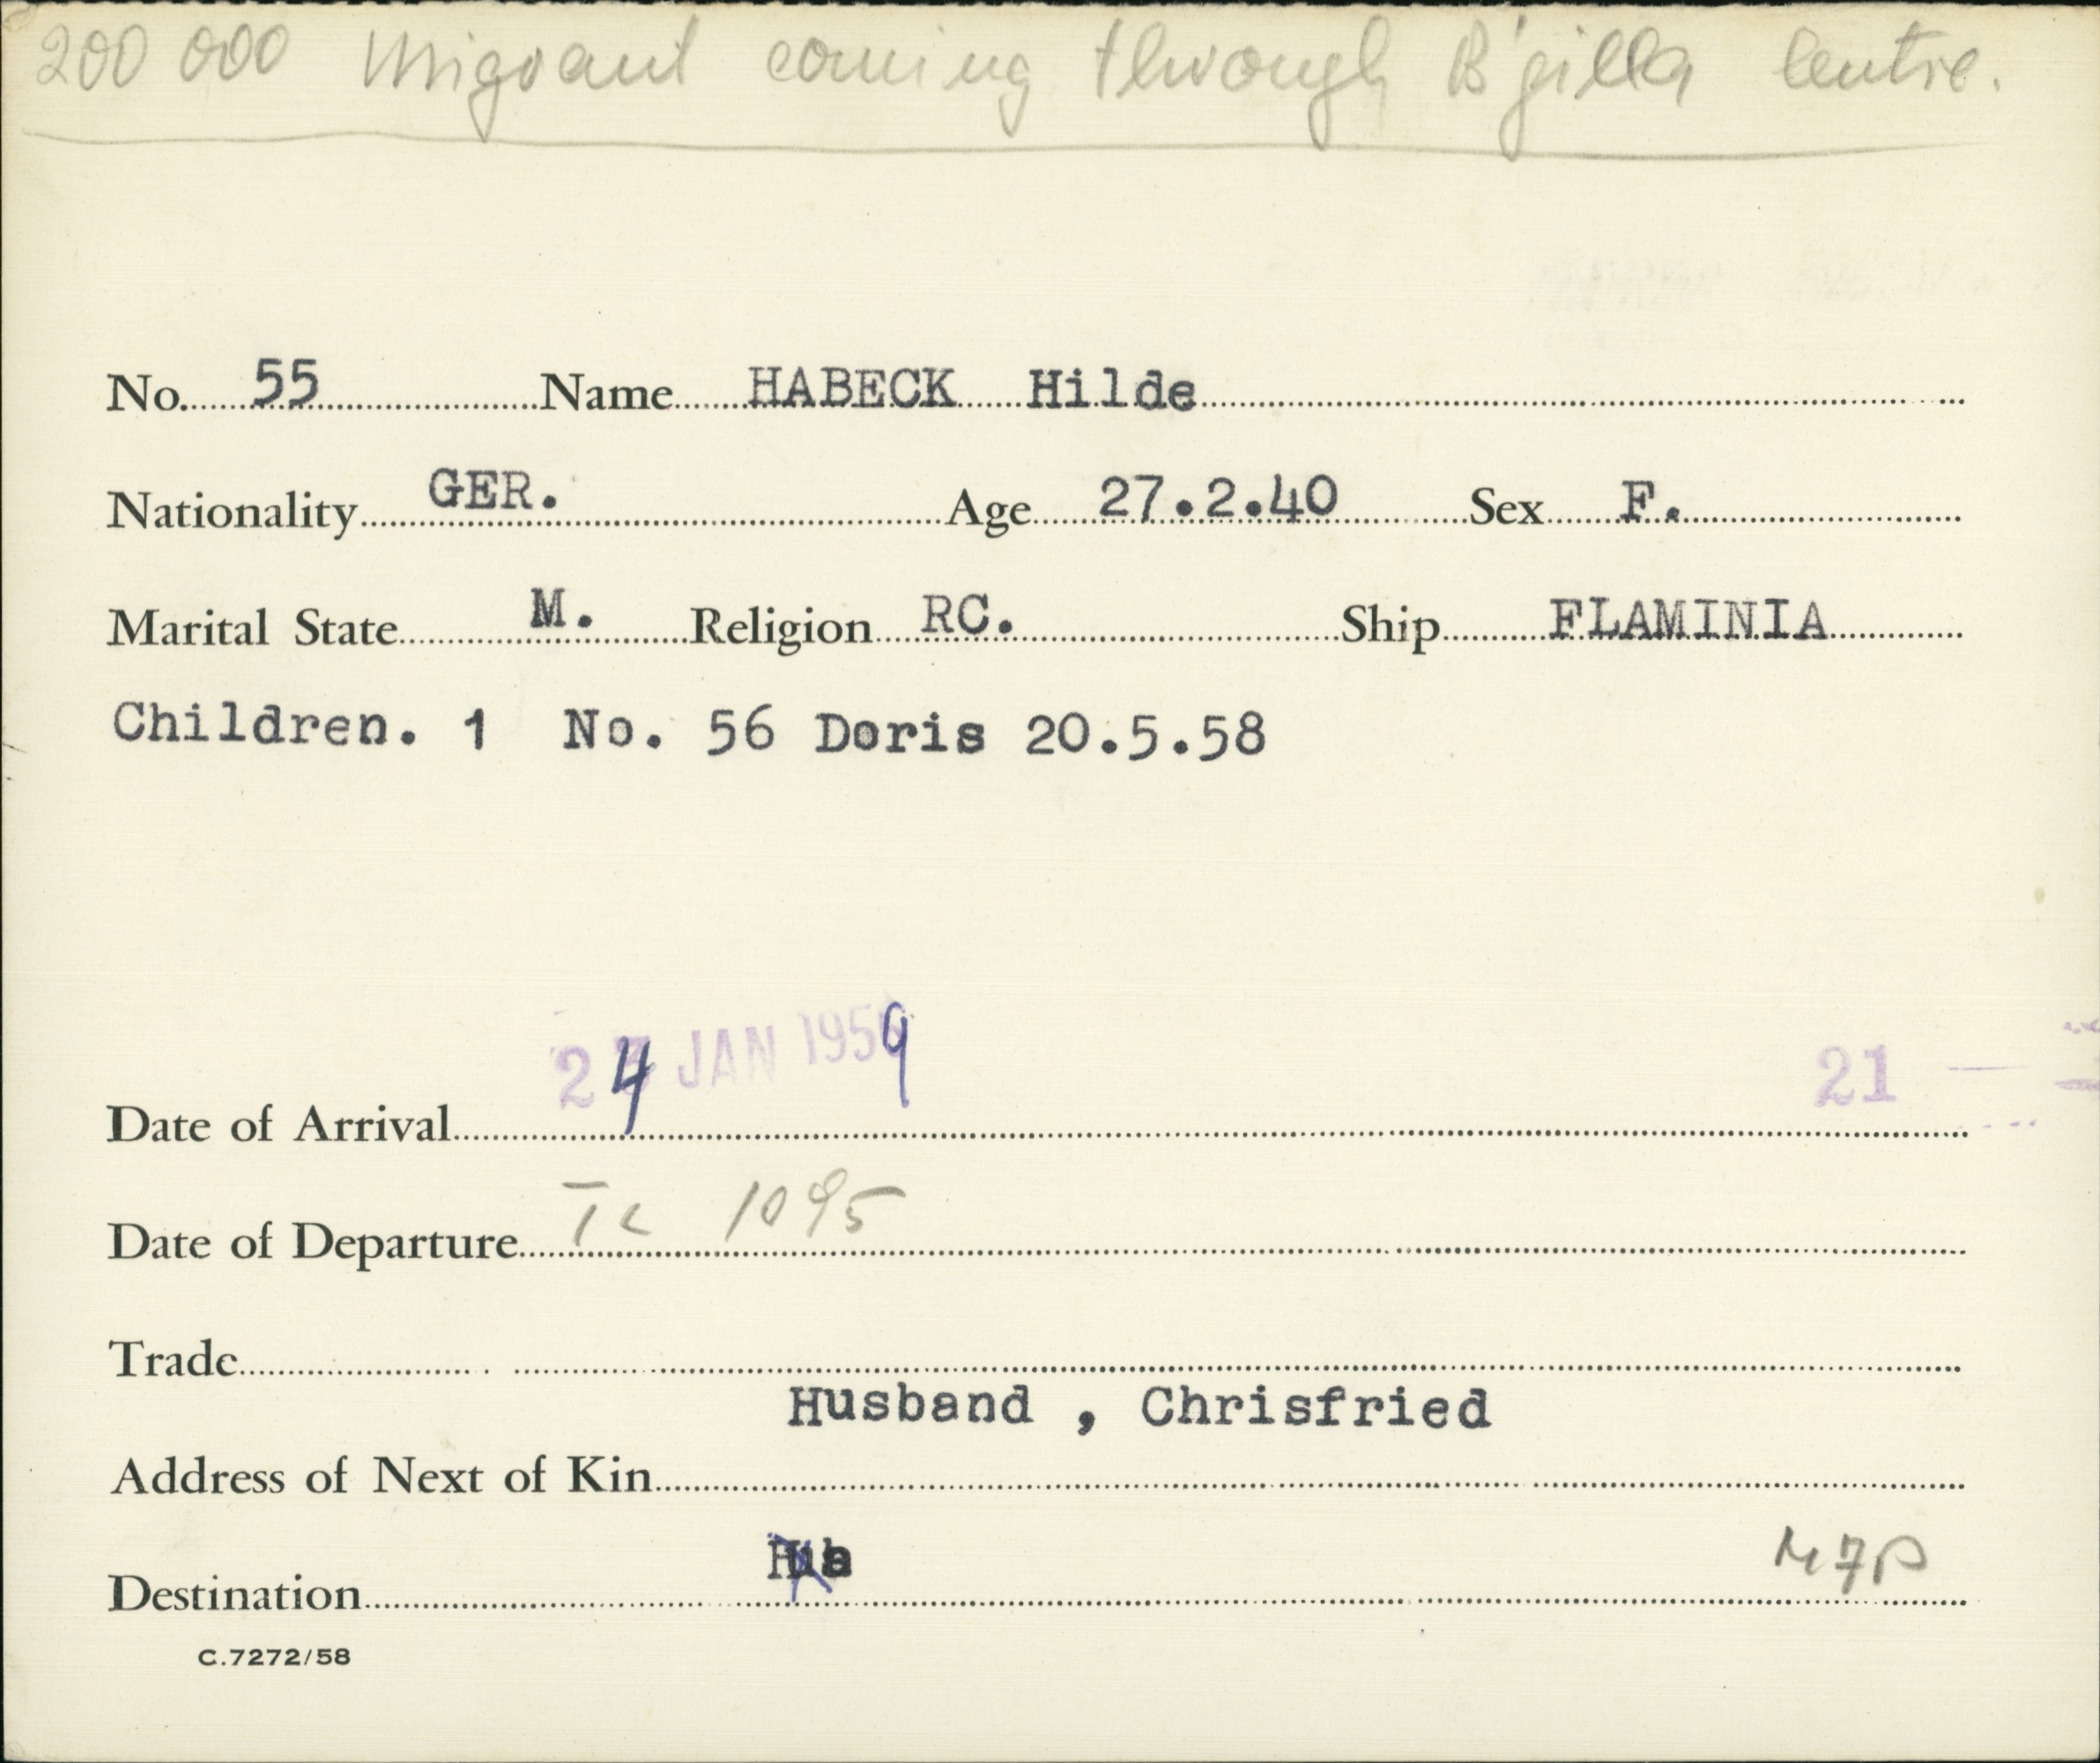 200 000 Migrant coming through B'gilla Centre.
No. 55 Name HABECK Hilde
Nationality GER. Age 27.2.40 Sex F.
Marital State M. Religion RC. Ship FLAMINIA
Children. 1 No. 56 Doris 20.5.58
Date of Arrival 24 JAN 1959 21
Date of Departure 1095
Trade
Husband , Chrisfried
Address of Next of Kin
Destination
C.7272/58